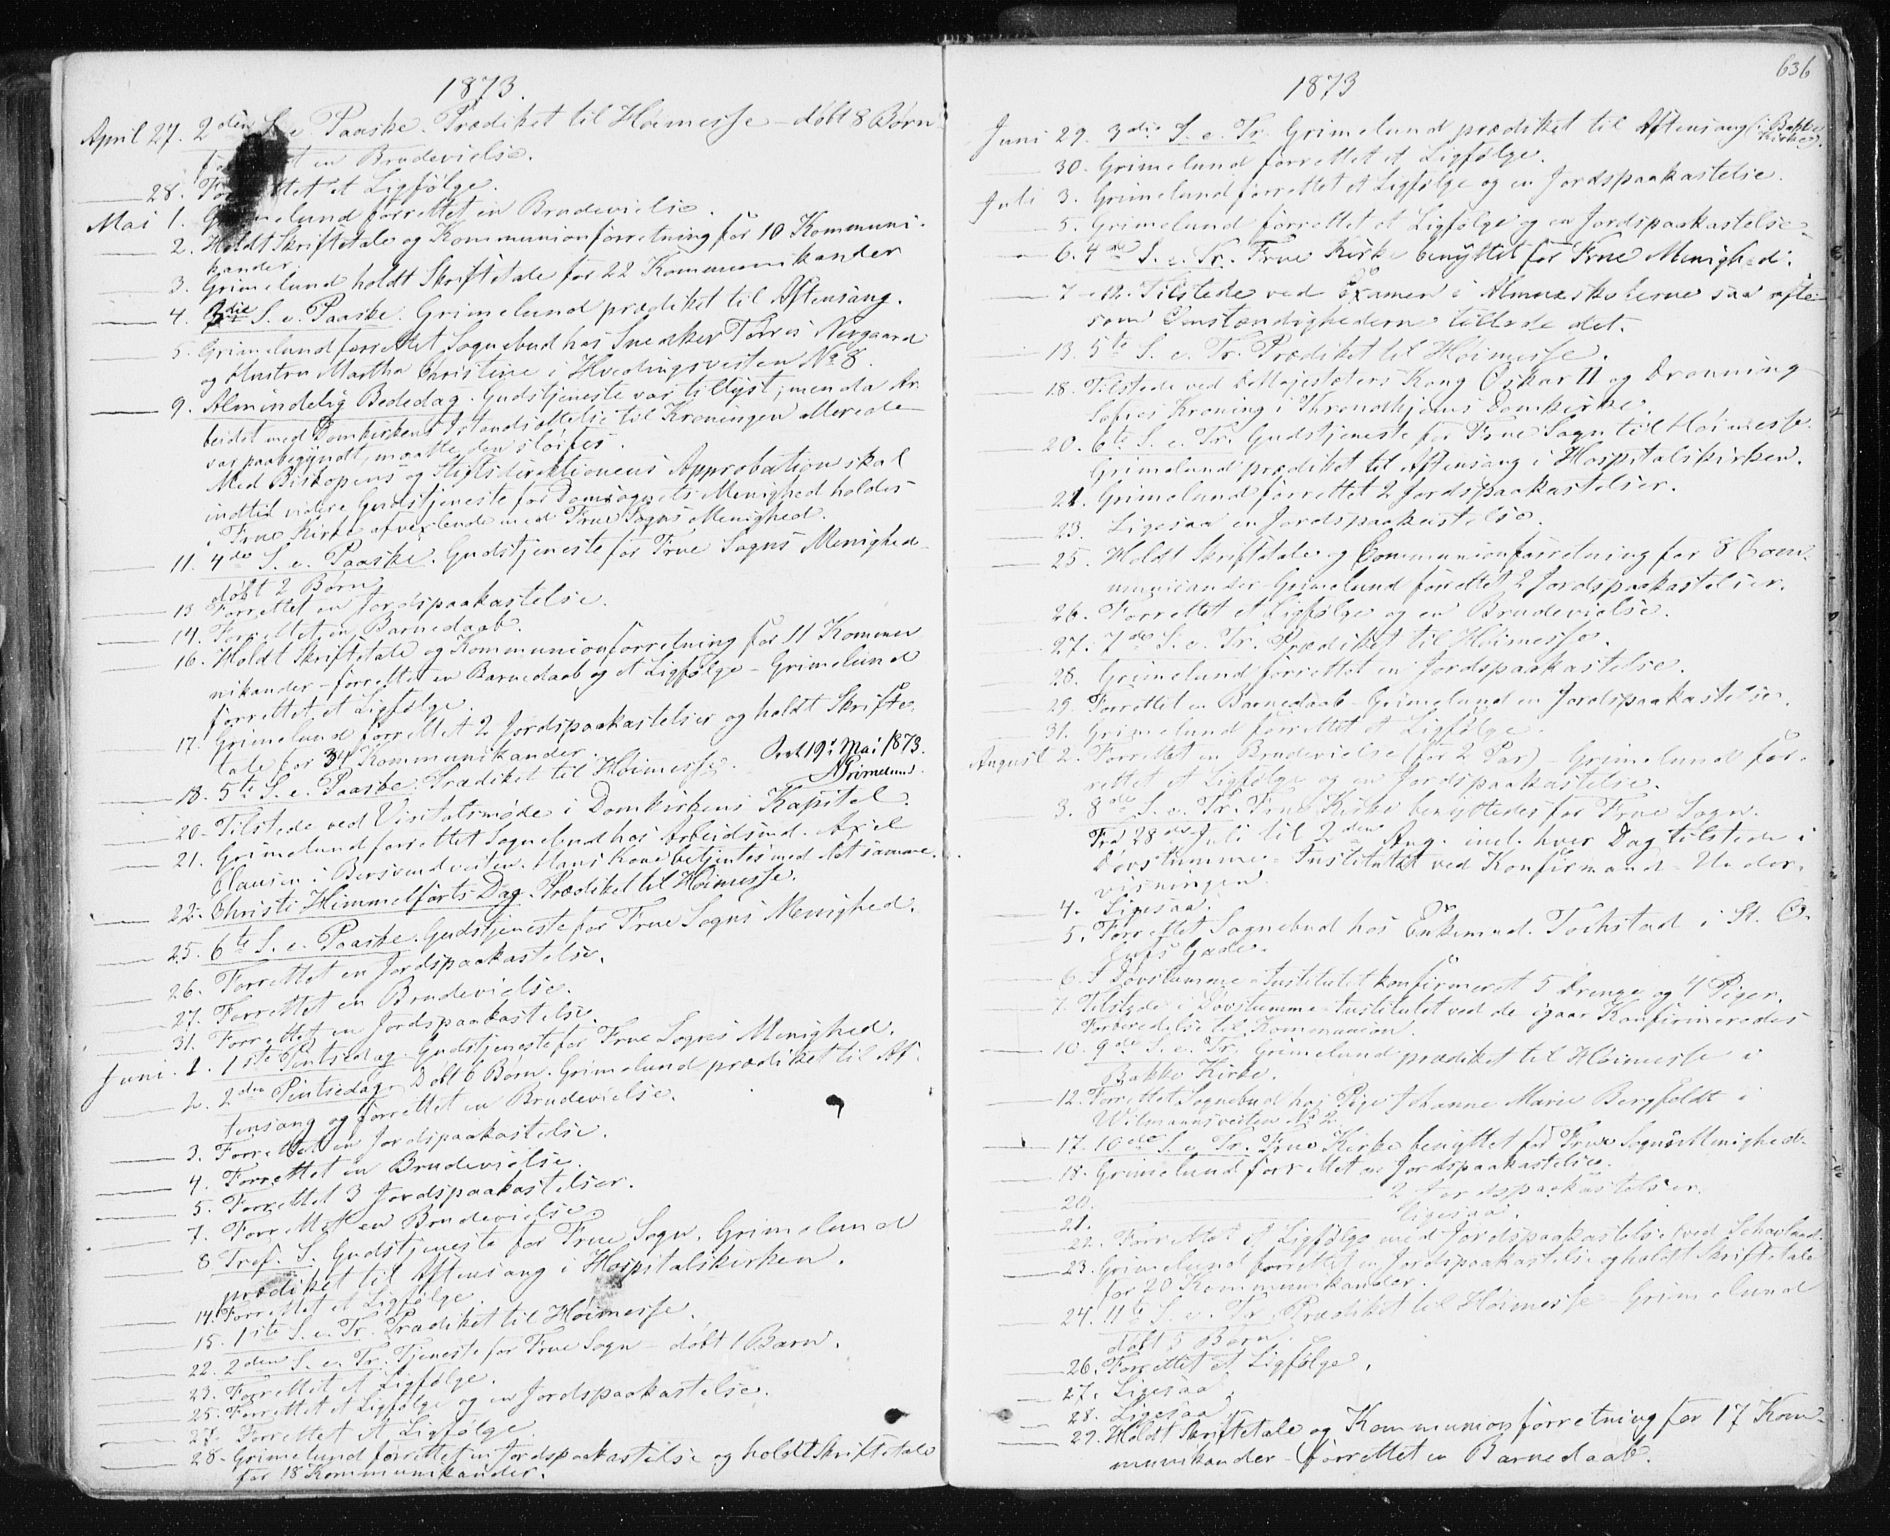 1873.
April 27. 2den S. e. Paaske. Prædiket til Høimesse – døbt 8 Børn
en Brudevielse.
28. Forrettet et Ligfølge.
Mai 1. Grimelund forrettet en Brudevielse.
2. Holdt Skriftetale og Kommunionforretning for 10 Kommuni-
kander.
3. Grimelund holdt Skriftetale for 22 Kommunikander
4. 3die S. e. Paaske. Grimelund prædiket til Aftensang.
5. Grimelund forrettet Sognebud hos Snedker Torres Norgaard
og Hustru Martha Christine i Hvedingsveiten No 8.
9. Almindelig Bededag. Gudstjeneste var tillyst, men da Ar
beidet med Domkirkens Istandsættelse til Kroningen allerede
var paabegyndt, maatte den sløifes.
Med Biskopens og Stiftsdirektionens Approbation skal
indtil videre Gudstjeneste for Domsognets Menighed holdes
i Frue Kirke afvexlende med Frue Sogns Menighed.
11. 4de S. e. Paaske. Gudstjeneste for Frue Sogns Menighed
døbt 2 Børn
13 Forrettet en Jordspaakastelse.
14. Forrettet en Barnedaab.
16. Holdt Skriftetale og Kommunionforretning for 11 Kommu
nikander – forrettet en Barnedaab og et Ligfølge – Grimelund
forrettet et Ligfølge.
17. Grimelund forrettet 2 Jordspaakastelser og holdt Skrifte
tale for 34 Kommunikander.
18. 5te S. e. Paaske. Prædiket til Høimesse. 19. Mai 1873.
Grimelund.
20. Tilstede ved Visitatsmøde i Domkirkens Kapitel.
21. Grimelund forrettet Sognebud hos Arbeidsmd. Axel
Clausen i Bersvendveiten. Hans Kone betjentes med det samme.
22. Christi Himmelfarts Dag. Prædiket til Høimesse.
25. 6te S. e. Paaske. Gudstjeneste for Frue Sogns Menighed.
26. Forrettet en Jordspaakastelse.
27. Forrettet en Brudevielse.
31. Forrettet en Jordspaakastelse.
Juni. 1. 1ste Pintsedag. Gudstjeneste for Frue Sogns Menighed.
2. 2den Pintsedag. Døbt 6 Børn. Grimelund prædiket til Af-
tensang og forrettet en Brudevielse.
3. Forrettet en Jordspaakastelse.
4. Forrettet en Brudevielse.
5. Forrettet 3 Jordspaakastelser.
7. Forrettet en Brudevielse.
8 Tref. S. Gudstjeneste for Frue Sogn. Grimelund
prædiket til Aftensang i Hospitalskirken.
14. Forrettet et Ligfølge.
15. 1ste S. e. Tr. Prædiket til Høimesse.
22. 2den S. e. Tr. Tjeneste for Frue Sogn – døbt 1 Barn.
23. Forrettet et Ligfølge.
25. Forrettet et Ligfølge og en Jordspaakastelse.
27. Forrettet et Ligfølge.
28. Grimelund forrettet en Jordspaakastelse og holdt Skriftetale
for 18 Kommunikander.
636
1873
Juni 29. 3die S. e. Tr. Grimelund prædiket til Aftensang (i Bakke
Kirke).
30. Grimelund forrettet et Ligfølge.
Juli 3. Grimelund forrettet et Ligfølge og en Jordspaakastelse.
5. Grimelund forrettet et Ligfølge og en Jordspaakastelse.
6. 4de S. e. Tr. Frue Kirke benyttet for Frue Menighed.
7 – 12. Tilstede ved Examen i Almueskolerne saa ofte
som Omstændighederne tillode det.
13. 5te S. e. Tr. Prædiket til Høimesse.
18. Tilstede ved De Majestæters Kong Oskar II og Dronning
Sofies Kroning i Throndhjems Domkirke.
20. 6te S. e. Tr. Gudstjeneste for Frue Sogn til Høimesse.
Grimelund prædiket til Aftensang i Hospitalskirken.
21. Grimelund forrettet 2 Jordspaakastelser.
23. Ligesaa en Jordspaakastelse.
25. Holdt Skriftetale og Communionforretning for 8 Com-
municander – Grimelund forrettet 2 Jordspaakastelser.
26. Forrettet et Ligfølge og en Brudevielse.
27. 7de S. e. Tr. Prædiket til Høimesse.
28. Grimelund forrettet en Jordspaakastelse.
29. Forrettet en Barnedaab – Grimelund en Jordspaakastelse.
31. Grimelund forrettet et Ligfølge.
August 2. Forrettet en Brudevielse (for 2 Par) – Grimelund for-
rettet et Ligfølge og en Jordspaakastelse.
3. 8de S. e. Tr. Frue Kirke benyttedes for Frue Sogn.
Fra 28de Juli til 2den Aug. incl. hver Dag tilstede i
Døvstumme-Institutet ved Konfirmand-Under-
visningen.
4. Ligesaa.
5. Forrettet Sognebud hos Enkemd. Tochstad i St. O-
lufs Gade.
6. I Døvstumme-Institutet konfirmeret 5 Drenge og 4 Piger.
7. Tilstede i Døvstumme-Institutet ved de igaar Konfirmeredes
Forberedelse til Kommunion.
10. 9de S. e. Tr. Grimelund prædiket til Høimesse i
Bakke Kirke.
12. Forrettet Sognebud hos Pige Johanne Marie Bergfeldt i
Wilmannsveiten No 2.
17. 10de S. e. Tr. Frue Kirke benyttet for Frue Sogns Menighed.
18. Grimelund forrettet en Jordspaakastelse.
20. 2 Jordspaakastelser.
21. Ligesaa.
22. Forrettet et Ligfølge med Jordspaakastelse
23. Grimelund forrettet en Jordspaakastelse og holdt Skriftetale
for 20 Kommunikander.
24. 11te S. e. Tr. Prædiket til Høimesse – Grimelund
døbt 5 Børn.
26. Forrettet et Ligfølge.
27. Ligesaa.
28. Ligesaa.
29. Holdt Skriftetale og Kommunionforretning for 17 Kom-
munikander – forrettet en Barnedaab.